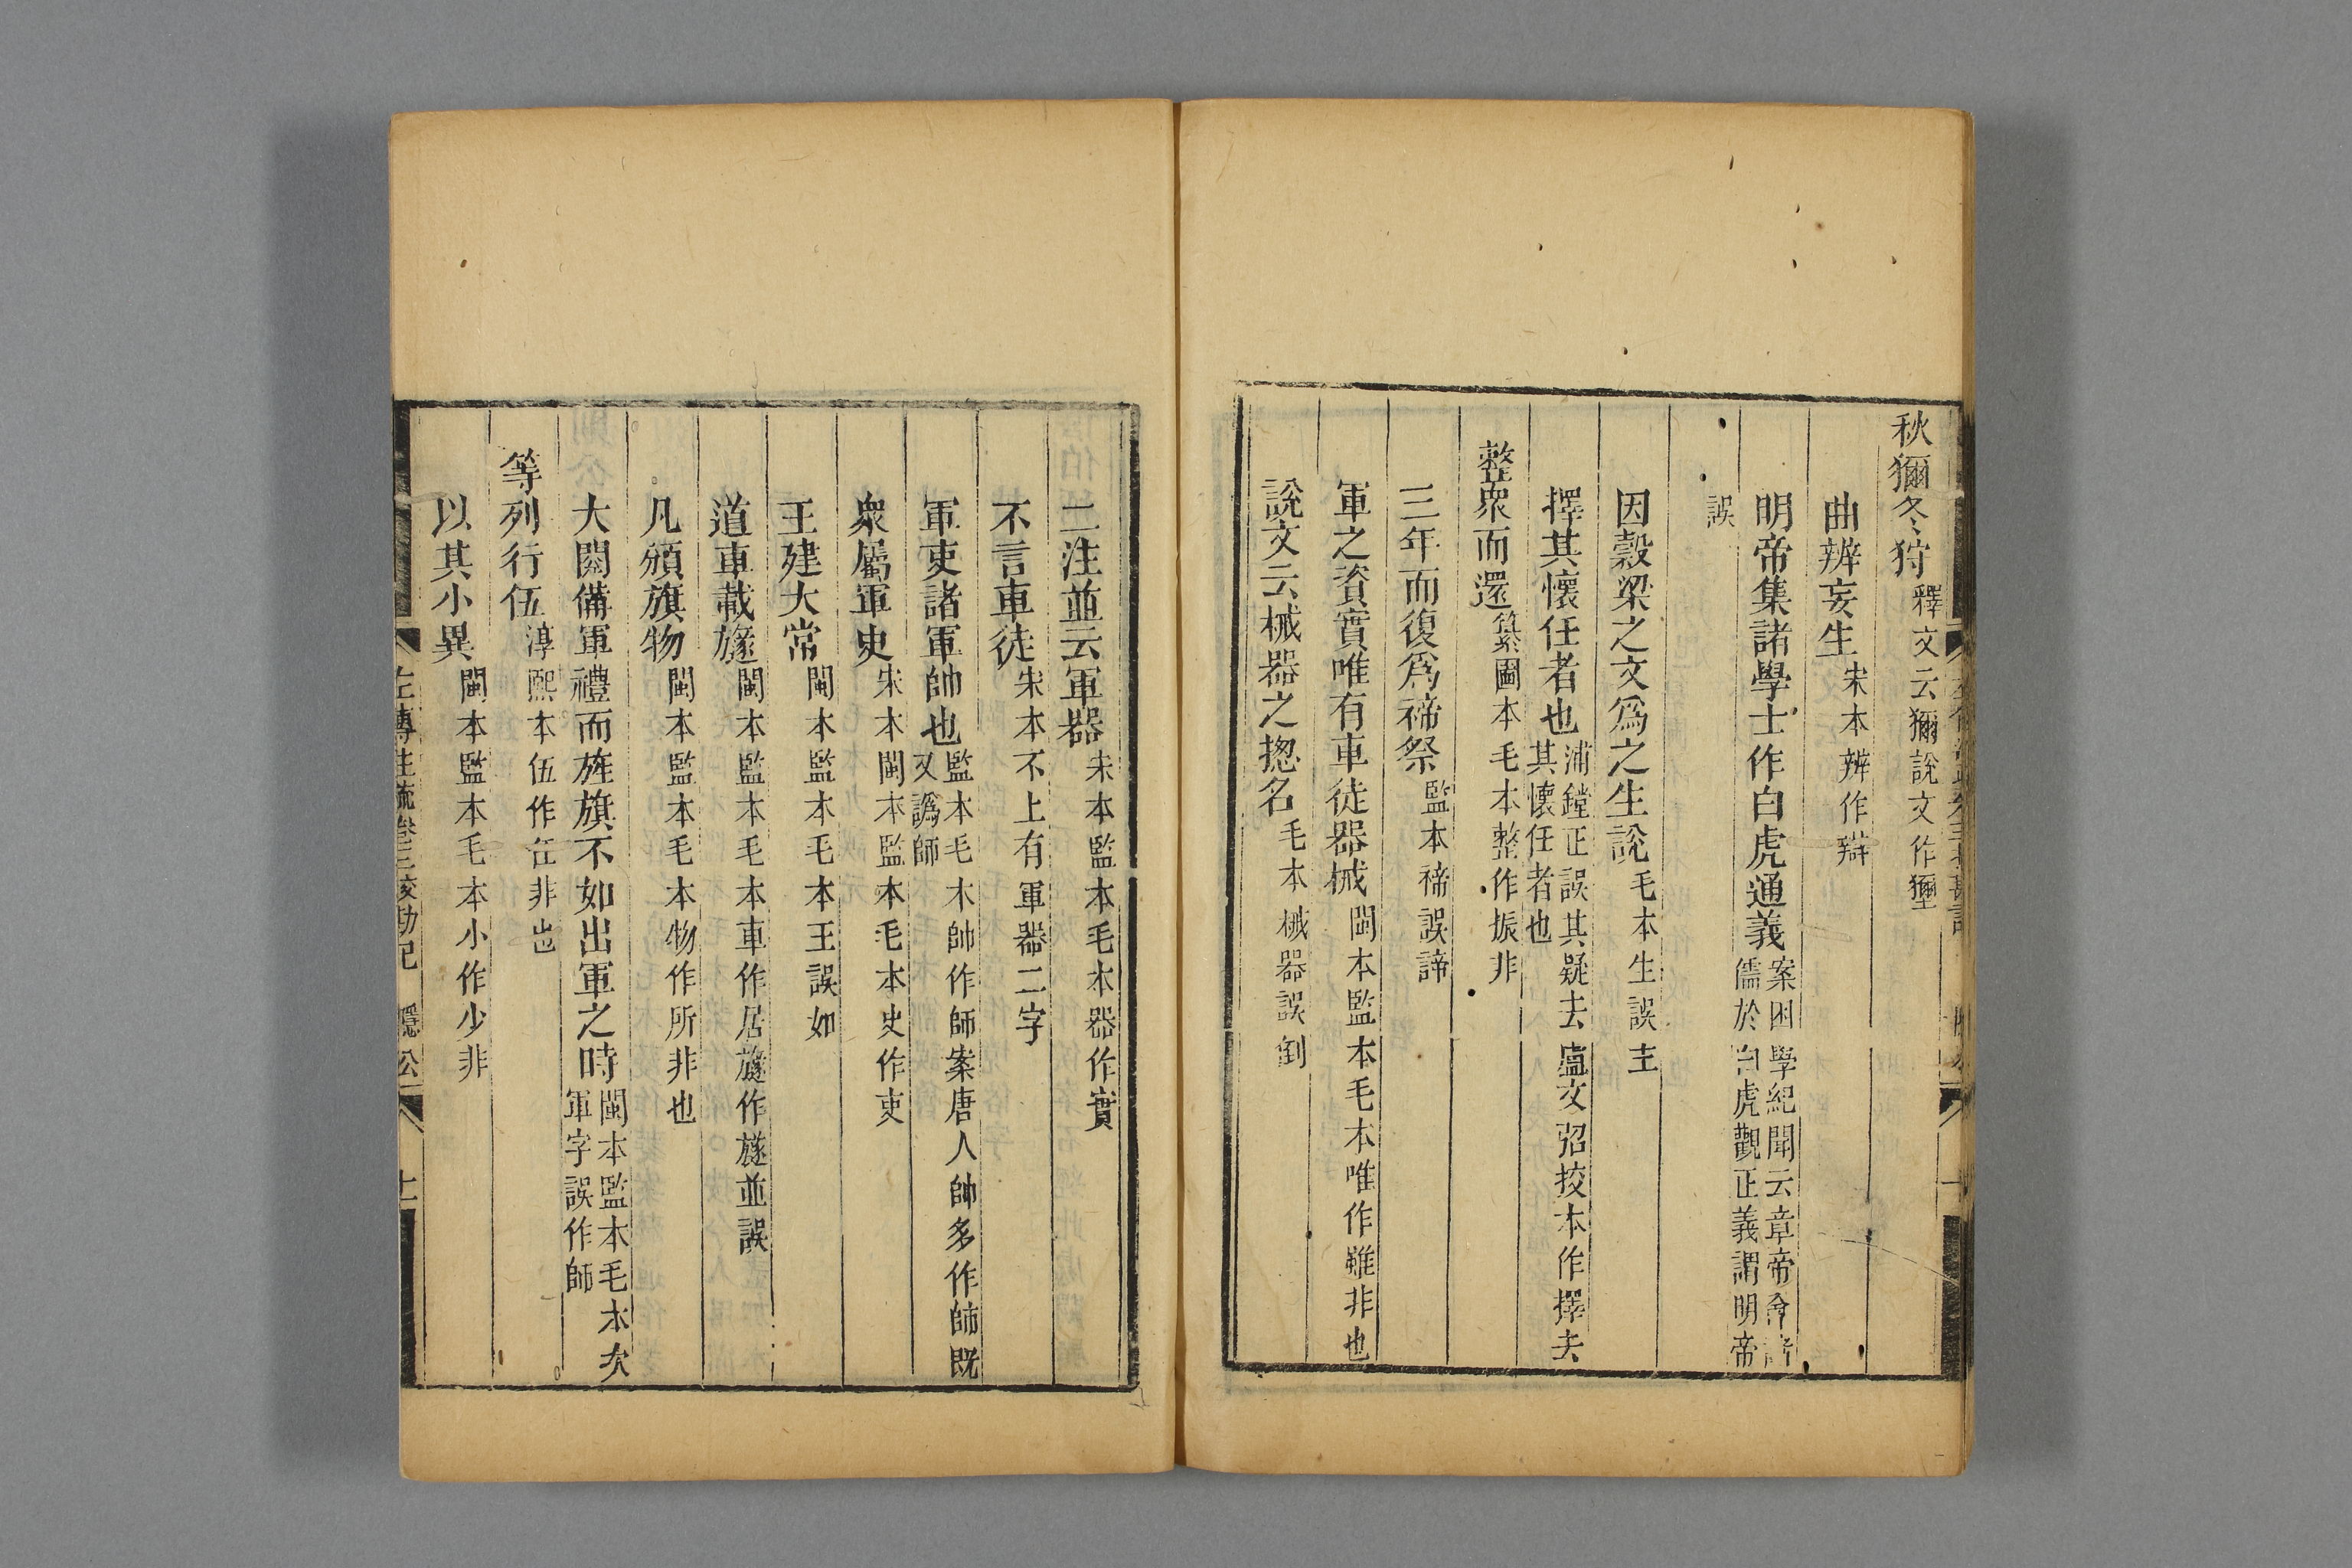 秋獮冬狩釋文云獮說文作𤣗
曲辨妄生宋本辨作辯
明帝集諸學士作白虎通義案困學紀聞云章帝會諸儒於白虎觀正義謂明帝
誤
因穀梁之文爲之生說毛本生誤主
擇其懷任者也浦鏜正誤其疑去盧文弨挍本作擇去其懷任者也
整衆而還纂圖本毛本整作振非
三年而復爲禘祭監本禘誤諦
軍之資實唯有車徒器械閩本監本毛本唯作雖非也
說文云械器之揔名毛本械器誤倒
二注並云軍器宋本監本毛本器作實
不言車徒宋本不上有軍器二字
軍吏諸軍帥也監本毛本帥作師案唐人帥多作師既又譌師
衆屬軍吏宋本閩本監本毛本史作吏
王建大常閩本監本毛本王誤如
道車載旞閩本監本毛本車作居旞作旞並誤
凡頒旗物閩本監本毛本物作所非也
大閱備軍禮而旌旗不如出軍之時閩本監本毛本次軍字誤作師
等列行伍淳熙本伍作任非也
以其小異閩本監本毛本小作少非
左傳注疏卷三挍勘記　隱公　十一